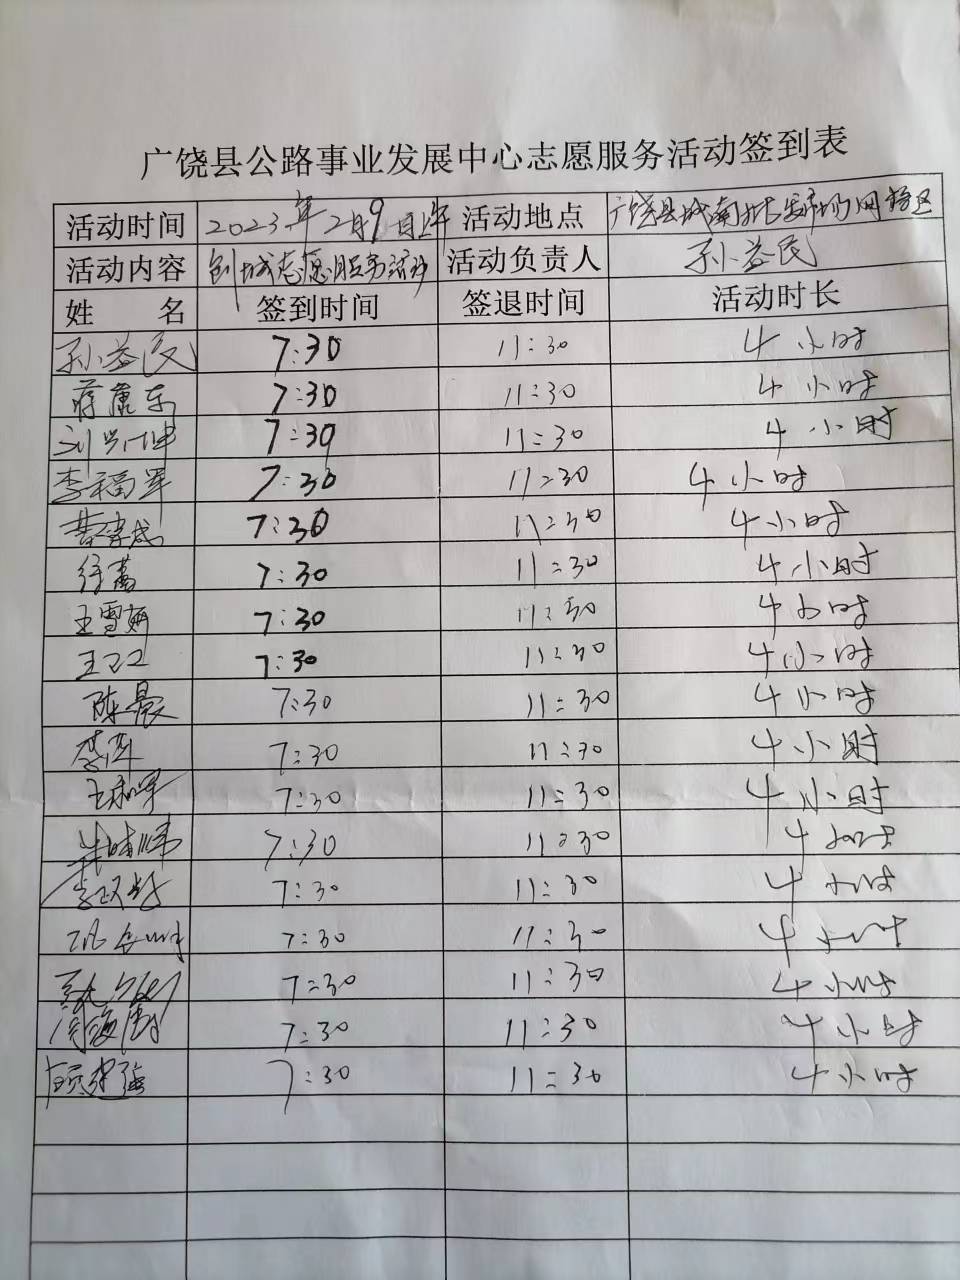 广饶县公路事业发展中心志愿服务活动签到表
活动时间 2023年2月9日上午 活动地点 广饶县城南 市场网格区
活动内容 创城志愿服务活动 活动负责人 孙益民
姓 名 签到时间 签退时间 活动时长
孙益民 7:30 11:30 4小时
蒋康东 7:30 11:30 4小时
刘兴坤 7:30 11:30 4小时
李福军 7:30 11:30 4小时
7:30 11:30 4小时
徐萬 7:30 11:30 4小时
王雪妍 7:30 11:30 4小时
7:30 11:30 4小时
陈晨 7:30 11:30 4小时
7:30 11:30 4小时
7:30 11:30 4小时
7:30 11:30 4小时
7:30 11:30 4小时
7:30 11:30 4小时
7:30 11:30 4小时
7:30 11:30 4小时
顾建强 7:30 11:30 4小时